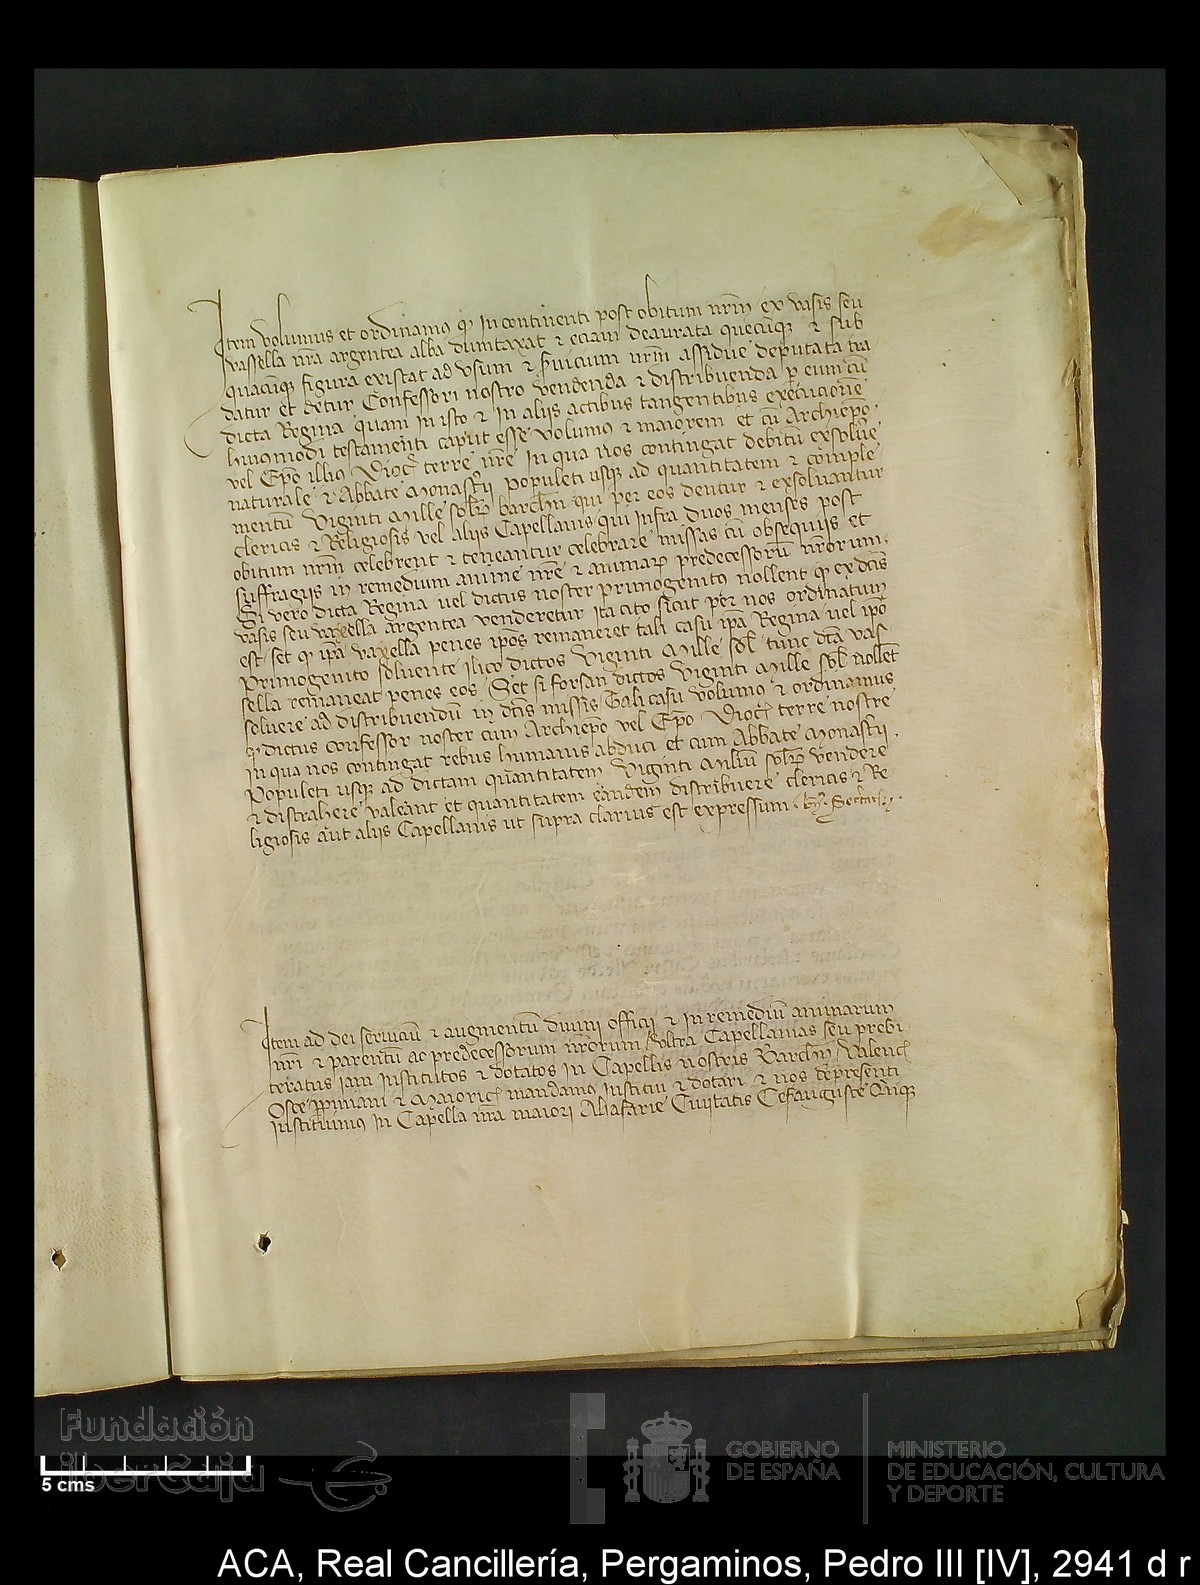 Item volumus et ordinamus qd in continenti post obitum nrm ex vasis seu
vassella nra argentea alba dumtaxat & eciam deaurata quecumq & sub
quacuq figura existat ad usum & servicium nrm assidue deputata tra
datur et detur Confessori nostro vendenda & distribuenda per eum cu
dicta Regina quam in isto & in alijs actibus tangentibus execucione
huiusmodi testamenti caput esse volumus & maiorem et cu Archiepo
vel Epo illius Dioc terre nre in qua nos contingat debitu exsolve
naturale & Abbate Monastii Populeti usq ad quantitatem & comple
mentu Viginti Mille solid barchn qui per eos dentur & exsolvantur
clericis & Religiosis vel alijs Capellanis qui infra duos menses post
obitum nrm celebrent & teneantur celebrare missas cu obsequijs et
suffragijs in remedium anime nre & animar predecessoru nrorum.
Si vero dicta Regina vel dictus noster primogenitus nollent qd ex dcis
vasis seu vaxella argentea venderetur ita cito sicut per nos ordinatum
est set qd ipa vaxella penes ipos remaneret tali casu ipa Regina vel ipo
Primogenito solvente ilico dictos Viginti Mille sol tunc dta vas
sella remaneat penes eos. Set si forsan dictos Viginti Mille sol nollet
solvere ad distribuendu in dcis missis Tali casu volumus & ordinamus
qd dictus confessor noster cum Archiepo vel Epo Dioc terre nostre
in qua nos contingat rebus humanis abduci et cum Abbate Monastii
Populeti usq ad dictam quantitatem Viginti Miliu solid vendere
& distrahere valeant et quantitatem eandem distribuere clericis & Re
ligiosis aut alijs Capellanis ut supra clarius est expressum.
Item ad dei serviciu & augmentu divini officij & in remediu animarum
nri & parentu ac predecessorum nrorum ultra Capellanias seu prebi
teratus iam institutos & dotatos in Capellis nostris Barchn Valenc
Osce Ppiniani & Maioric mandamus institui & dotari & nos de presenti
instituimus in Capella nra maiori Aliafarie Civitatis Cesauguste Quinq
Fundación
iberCaja
5 cms
GOBIERNO
DE ESPAÑA
MINISTERIO
DE EDUCACIÓN, CULTURA
Y DEPORTE
ACA, Real Cancillería, Pergaminos, Pedro III [IV], 2941 d r